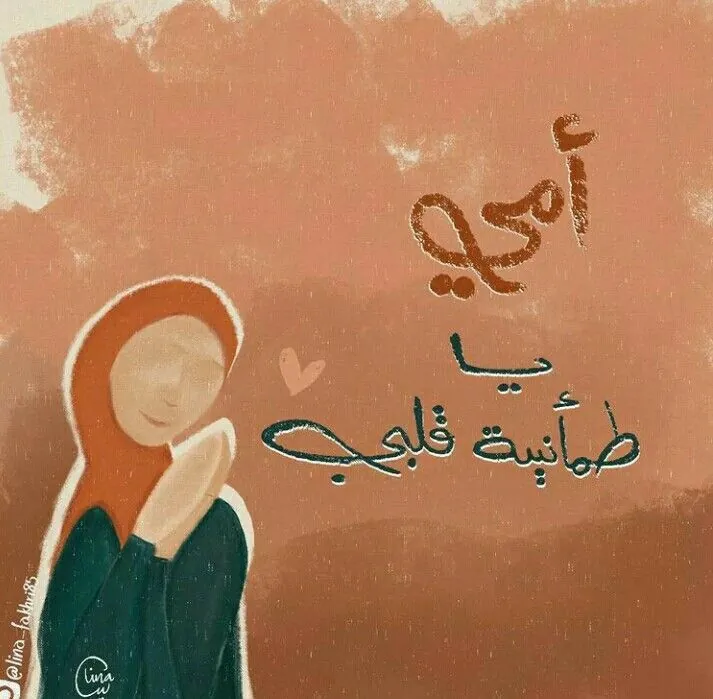 أمي
يا
طمأنينة قلبي
@lina_fakhri85
lina